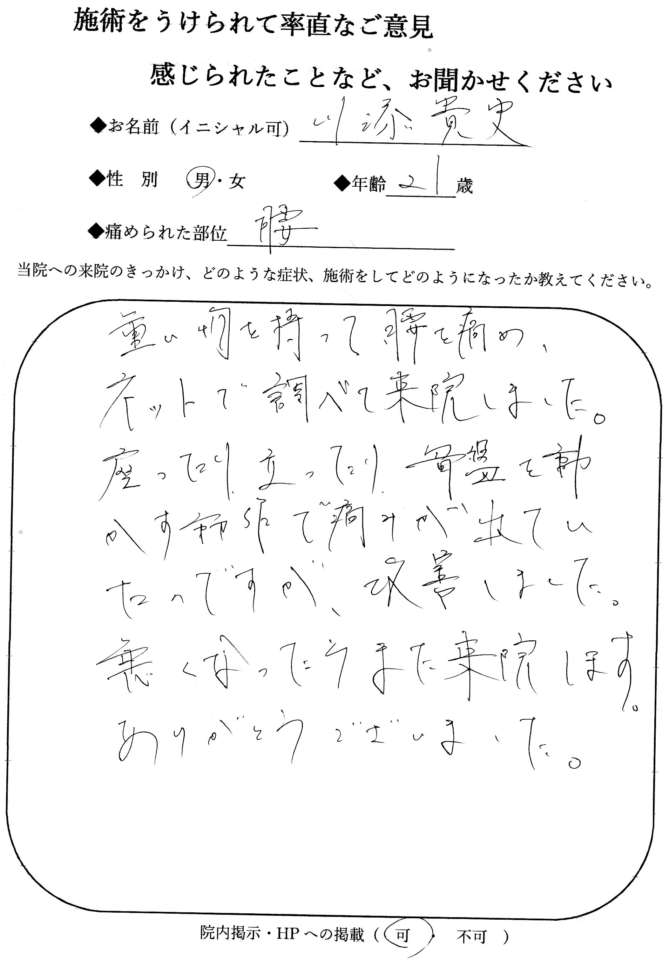 施術をうけられて率直なご意見
感じられたことなど、お聞かせください
◆お名前（イニシャル可） 川添 貴史
◆性 別 男・女 ◆年齢 21 歳
◆痛められた部位 腰
当院への来院のきっかけ、どのような症状、施術をしてどのようになったか教えてください。
重い物を持って腰を痛め、
ネットで調べて来院しました。
座ったり立ったり骨盤を動
かす動作で痛みが出てい
たのですが、改善しました。
悪くなったらまた来院します。
ありがとうございました。
院内掲示・HPへの掲載（ 可 ・ 不可 ）